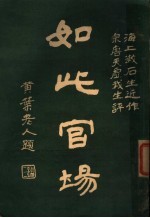 海上漱石生近作
泉唐天虛我生評
如此官場
黃葉老人題